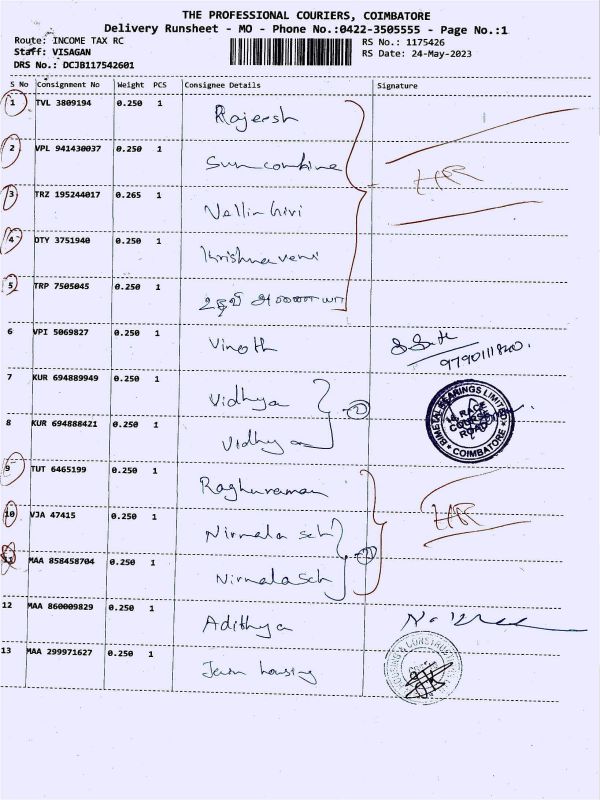 THE PROFESSIONAL COURIERS, COIMBATORE
Delivery Runsheet - MO - Phone No.:0422-3505555 - Page No.:1
Route: INCOME TAX RC RS No.: 1175426
Staff: VISAGAN RS Date: 24-May-2023
DRS No.: DCJB117542601
S No Consignment No Weight PCS Consignee Details Signature
1 TVL 3809194 0.250 1 Rajeesh
2 VPL 941430037 0.250 1 Sun combine
HR
3 TRZ 195244017 0.265 1 Nellin
4 OTY 3751940 0.250 1 Krishnaveni
5 TRP 7505045 0.250 1 உதவி
6 VPI 5069827 0.250 1 Vinoth
7 KUR 694889949 0.250 1 Vidhya
2 BIMETAL BEARINGS LIMITED 18, RACE COURSE ROAD COIMBATORE
8 KUR 694888421 0.250 1 Vidhya
9 TUT 6465199 0.250 1 Raghuraman
10 VJA 47415 0.250 1 Nirmala sch HR
11 MAA 858458704 0.250 1 Nirmala sch 2
12 MAA 860009829 0.250 1 Adithya
13 MAA 299971627 0.250 1 Jain housing